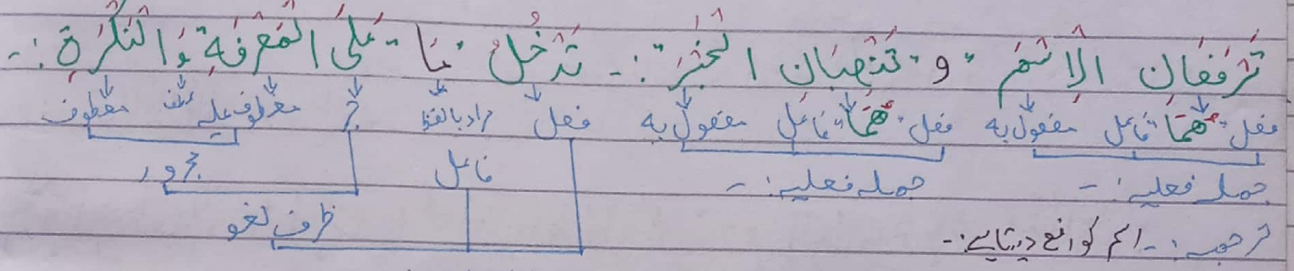 تَرْفَعَانِ الْاِسْمَ وَ تَنْصِبَانِ الْخَبَرَ :- تَدْخُلُ "مَا" عَلَى الْمَعْرِفَةِ وَالنَّكِرَةِ :-
فعل "هُمَا" فاعل مفعول بہ فعل "هُمَا" فاعل مفعول بہ فعل مراد باللفظ جر معطوف علیہ عطف معطوف
جملہ فعلیہ :- جملہ فعلیہ :- فاعل مجرور
ترجمہ :- اسم کو رفع دیتا ہے :- ظرف لغو